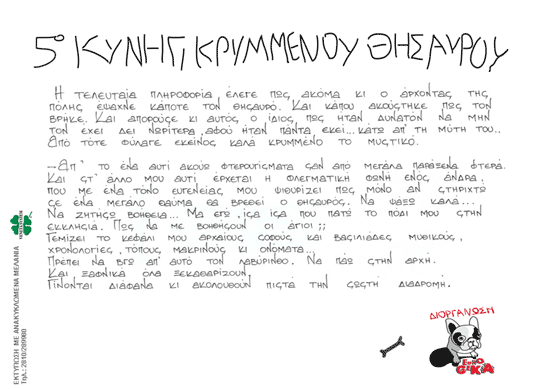 5ο ΚΥΝΗΓΙ ΚΡΥΜΜΕΝΟΥ ΘΗΣΑΥΡΟΥ
Η ΤΕΛΕΥΤΑΙΑ ΠΛΗΡΟΦΟΡΙΑ ΕΛΕΓΕ ΠΩΣ ΑΚΟΜΑ ΚΙ Ο ΑΡΧΟΝΤΑΣ ΤΗΣ
ΠΟΛΗΣ ΕΨΑΧΝΕ ΚΑΠΟΤΕ ΤΟΝ ΘΗΣΑΥΡΟ. ΚΑΙ ΚΑΠΟΥ ΑΚΟΥΣΤΗΚΕ ΠΩΣ ΤΟΝ
ΒΡΗΚΕ. ΚΑΙ ΑΠΟΡΟΥΣΕ ΚΙ ΑΥΤΟΣ, Ο ΙΔΙΟΣ, ΠΩΣ ΗΤΑΝ ΔΥΝΑΤΟΝ ΝΑ ΜΗΝ
ΤΟΝ ΕΧΕΙ ΔΕΙ ΝΩΡΙΤΕΡΑ, ΑΦΟΥ ΗΤΑΝ ΠΑΝΤΑ ΕΚΕΙ...ΚΑΤΩ ΑΠ' ΤΗ ΜΥΤΗ ΤΟΥ..
ΑΠΟ ΤΟΤΕ ΦΥΛΑΓΕ ΕΚΕΙΝΟΣ ΚΑΛΑ ΚΡΥΜΜΕΝΟ ΤΟ ΜΥΣΤΙΚΟ.
-ΑΠ' ΤΟ ΕΝΑ ΑΥΤΙ ΑΚΟΥΩ ΦΤΕΡΟΥΓΙΣΜΑΤΑ ΣΑΝ ΑΠΟ ΜΕΓΑΛΑ ΠΑΡΑΞΕΝΑ ΦΤΕΡΑ.
ΚΑΙ ΣΤ' ΑΛΛΟ ΜΟΥ ΑΥΤΙ ΕΡΧΕΤΑΙ Η ΦΛΕΓΜΑΤΙΚΗ ΦΩΝΗ ΕΝΟΣ ΑΝΔΡΑ,
ΠΟΥ ΜΕ ΕΝΑ ΤΟΝΟ ΕΥΓΕΝΕΙΑΣ ΜΟΥ ΨΙΘΥΡΙΖΕΙ ΠΩΣ ΜΟΝΟ ΑΝ ΣΤΗΡΙΧΤΩ
ΣΕ ΕΝΑ ΜΕΓΑΛΟ ΘΑΥΜΑ ΘΑ ΒΡΕΘΕΙ Ο ΘΗΣΑΥΡΟΣ. ΝΑ ΨΑΞΩ ΚΑΛΑ...
ΝΑ ΖΗΤΗΣΩ ΒΟΗΘΕΙΑ... ΜΑ ΕΓΩ, ΙΣΑ ΙΣΑ ΠΟΥ ΠΑΤΩ ΤΟ ΠΟΔΙ ΜΟΥ ΣΤΗΝ
ΕΚΚΛΗΣΙΑ. ΠΩΣ ΝΑ ΜΕ ΒΟΗΘΗΣΟΥΝ ΟΙ ΑΓΙΟΙ ;;
ΓΕΜΙΖΕΙ ΤΟ ΚΕΦΑΛΙ ΜΟΥ ΑΡΧΑΙΟΥΣ ΣΟΦΟΥΣ ΚΑΙ ΒΑΣΙΛΙΑΔΕΣ ΜΥΘΙΚΟΥΣ,
ΧΡΟΝΟΛΟΓΙΕΣ, ΤΟΠΟΥΣ ΜΑΚΡΙΝΟΥΣ ΚΙ ΟΝΟΜΑΤΑ...
ΠΡΕΠΕΙ ΝΑ ΒΓΩ ΑΠ' ΑΥΤΟ ΤΟΝ ΛΑΒΥΡΙΝΘΟ. ΝΑ ΠΑΩ ΣΤΗΝ ΑΡΧΗ.
ΚΑΙ ΞΑΦΝΙΚΑ ΟΛΑ ΞΕΚΑΘΑΡΙΖΟΥΝ.
ΓΙΝΟΝΤΑΙ ΔΙΑΦΑΝΑ ΚΙ ΑΚΟΛΟΥΘΟΥΝ ΠΙΣΤΑ ΤΗΝ ΣΩΣΤΗ ΔΙΑΔΡΟΜΗ.
ΔΙΟΡΓΑΝΩΣΗ
ΕΚΤΥΠΩΣΗ ΜΕ ΑΝΑΚΥΚΛΩΜΕΝΑ ΜΕΛΑΝΙΑ